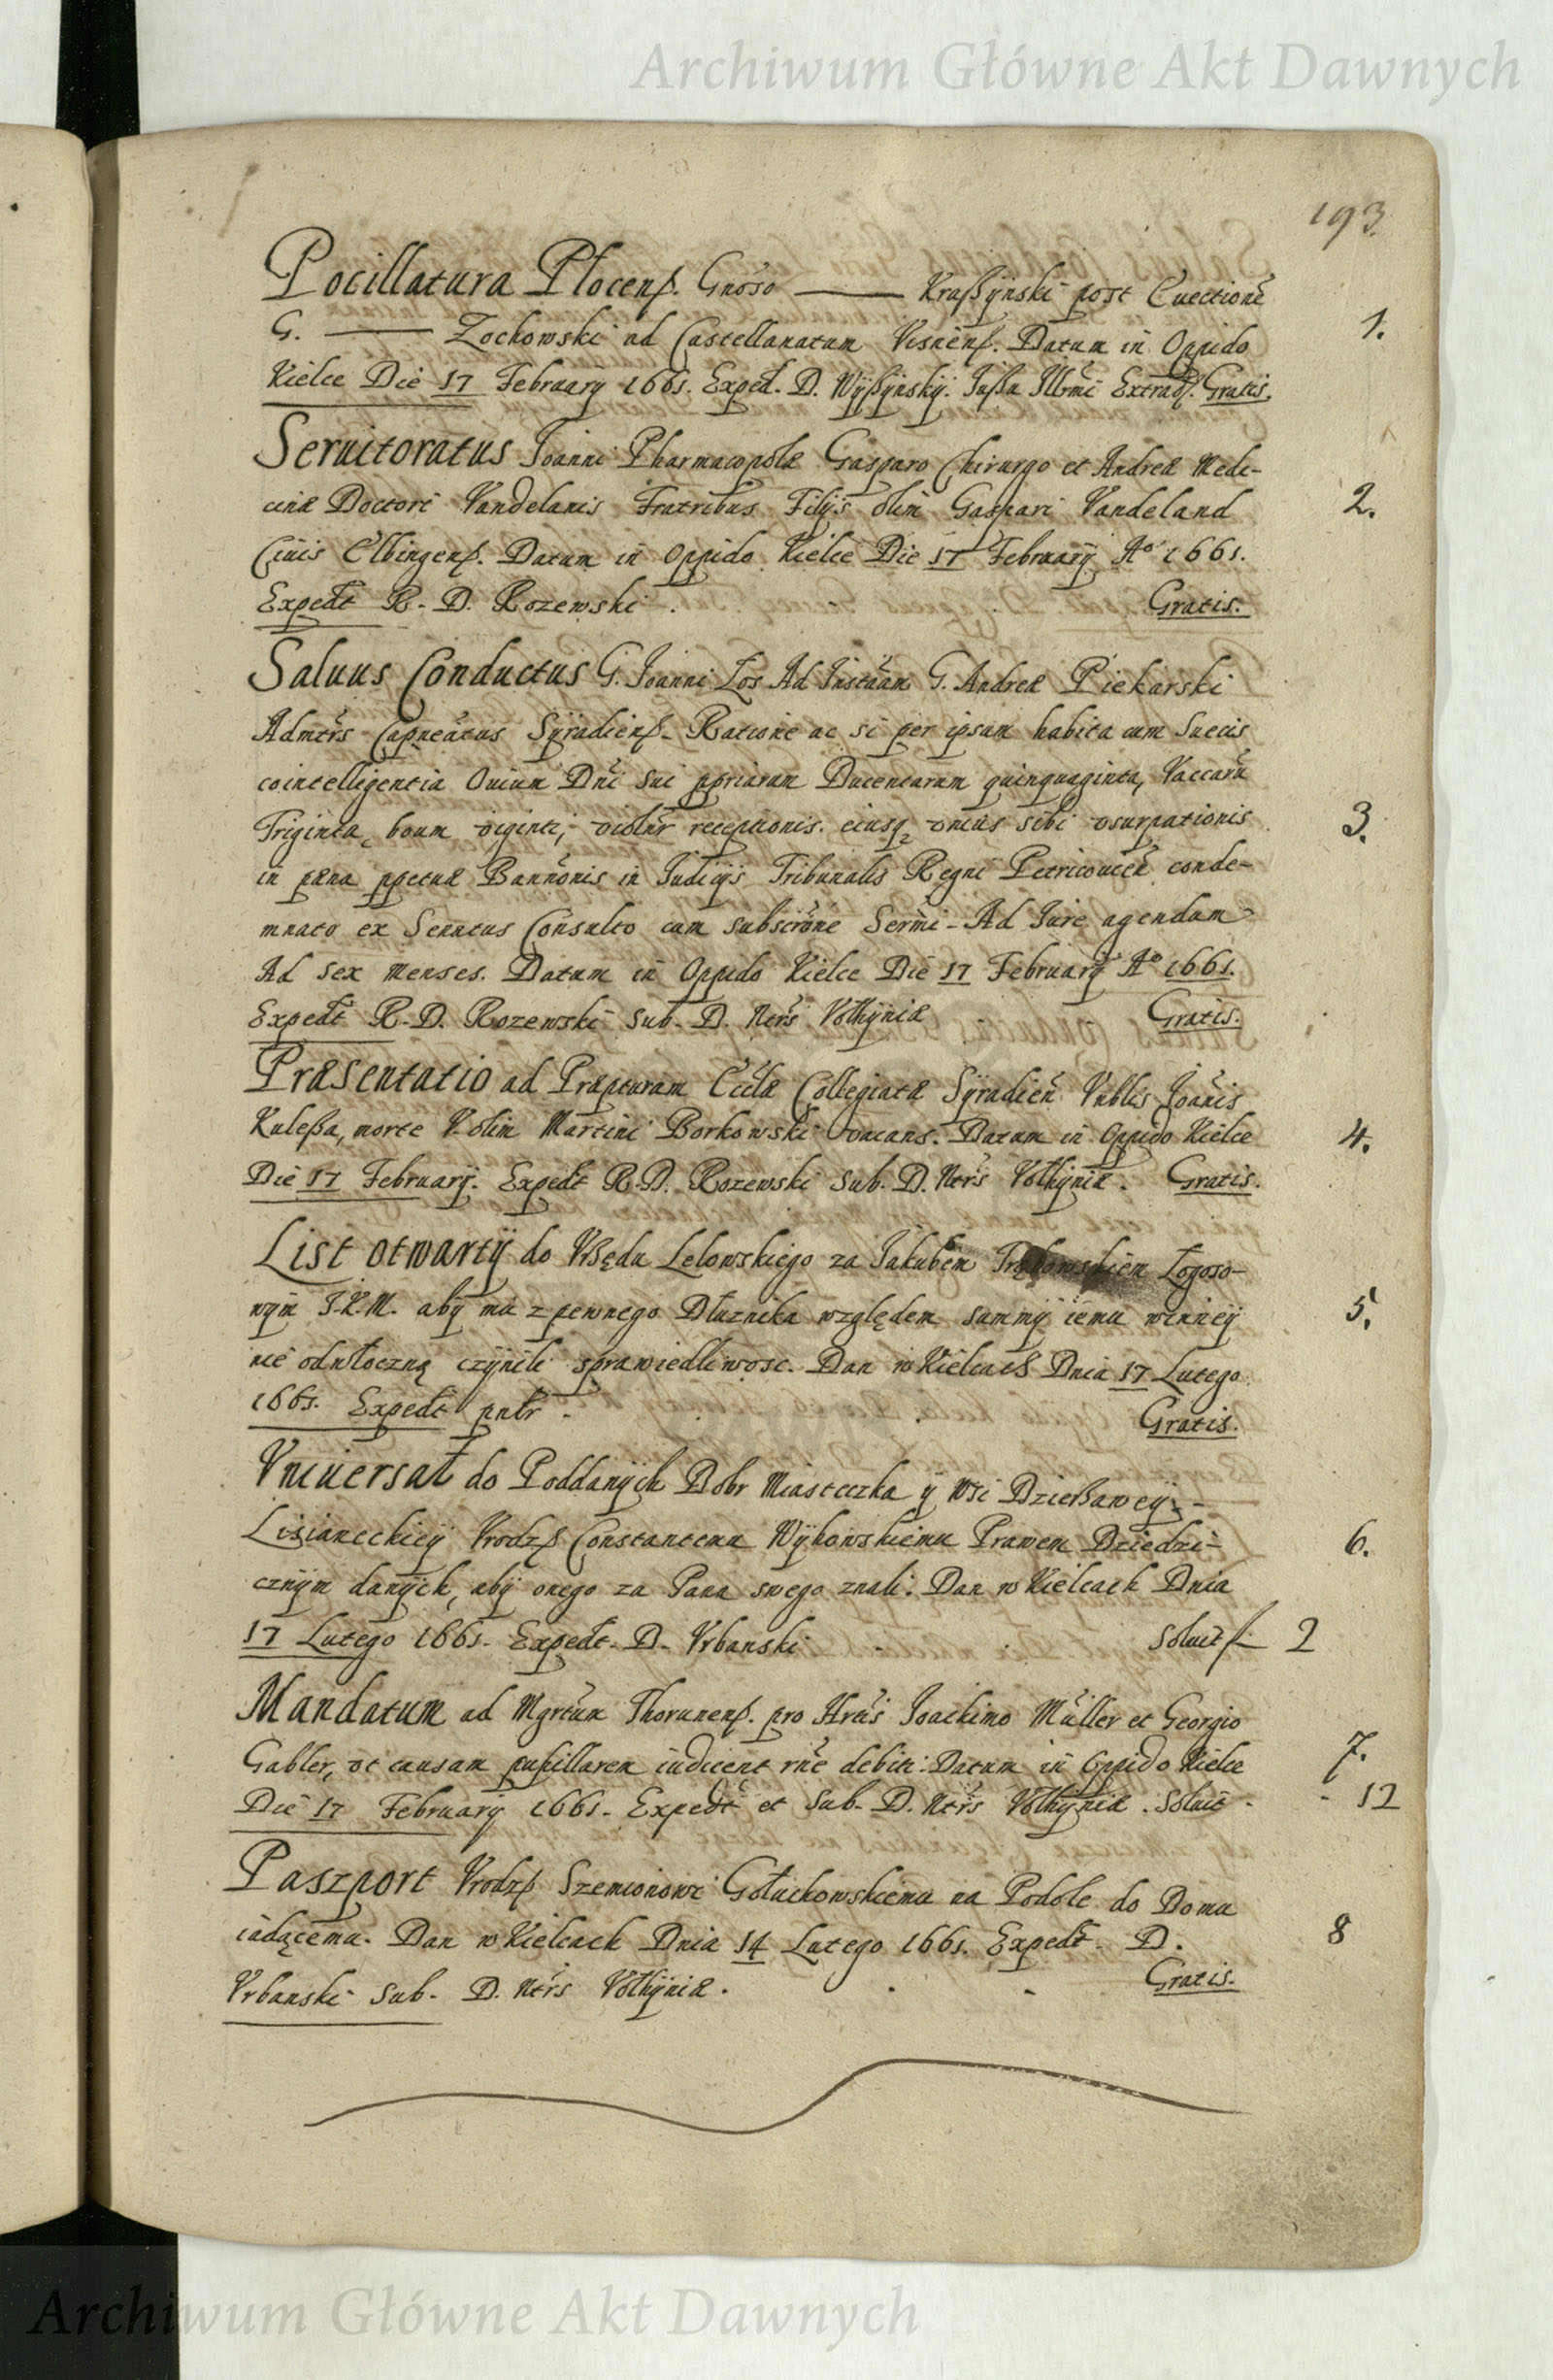 Archiwum Główne Akt Dawnych
193
Pocillatura Płocenß. Gnoso —— Kraßÿnski post Euectionẽ
G. —— Zochowski ad Castellanatum Visnenß. Datum in Oppido
1.
Kielce Die 17 February 1661. Exped. D. Wÿßÿnskÿ. Jußu Illrmi Extrad. Gratis.
Seruitoratus Joanni Pharmacopolæ Gasparo Chirurgo et Andreæ Medi-
cinæ Doctori Vandelanis Fratribus Filÿs olim Gaspari Vandeland
2.
Ciuis Elbingenß. Datum in Oppido Kielce Die 17 Februarÿ Aº 1661.
Expedt R. D. Rozewski. Gratis.
Saluus Conductus G. Joanni Łos Ad Instãam G. Andreæ Piekarski
Admrs Capneatus Sÿradienß. Ratione ac si per ipsum habita cum Suecis
cointelligentia Ouium Dni sui ppriarum Ducentarum quinquaginta, Vaccarũ
Triginta, boum viginti, violnr receptionis. eiusq vnius sibi vsurpationis
3.
in pæna ppetuæ Bannonis in Judicÿs Tribunalis Regni Petricouień conde-
mnato ex Senatus Consulto cum subscrone Sermi - Ad Jure agendum
Ad sex Menses. Datum in Oppido Kielce Die 17 Februarÿ Aº 1661.
Expedt R. D. Rozewski Sub. D. Nrs Vołhÿniæ Gratis.
Præsentatio ad Præpturam Eccłæ Collegiatæ Sÿradień Vnblis Joãnis
Kuleßa, morte V. olim Martini Borkowski vacans. Datum in Oppido Kielce
4.
Die 17 Februarÿ. Expedt R. D. Rozewski Sub. D. Nrs Vołhÿniæ. Gratis.
List otwartÿ do Vrßędu Lelowskiego za Jakubem Łogoso-
wÿm J.K.M. abÿ mu z pewnego Dłuznika względem summÿ iemu winneÿ
5.
nie odwłoczną czÿnili sprawiedliwosc. Dan w Kielcach Dnia 17 Lutego
1661. Expedt pntr. Gratis.
Vniuersał do Poddanÿch Dobr Miasteczka ÿ Wsi Dzierßaweÿ -
Lisianeckieÿ Vrodzß Constantemu Wÿhowskiemu Prawem Dziedzi-
6.
cznÿm danÿch, abÿ onego za Pana swego znali. Dan w Kielcach Dnia
17 Lutego 1661. Expedt. D. Vrbanski Soluit f— 2
Mandatum ad Mgrtum Thorunenß. pro Hrãis Joachimo Müller et Georgio
Gabler, vt causam pupillarem iudicent rne debiti. Datum in Oppido Kielce
7.
Die 17 February 1661. Expedt et Sub. D. Nrs Vołhÿniæ. Soluit - - 12
Paszport Vrodzß Szemionowi Gołuchowskiemu na Podole do Domu
iadącemu. Dan w Kielcach Dnia 14 Lutego 1661. Expedt. D.
8
Vrbanski Sub. D. Nrs Vołhÿniæ. Gratis.
Archiwum Główne Akt Dawnych